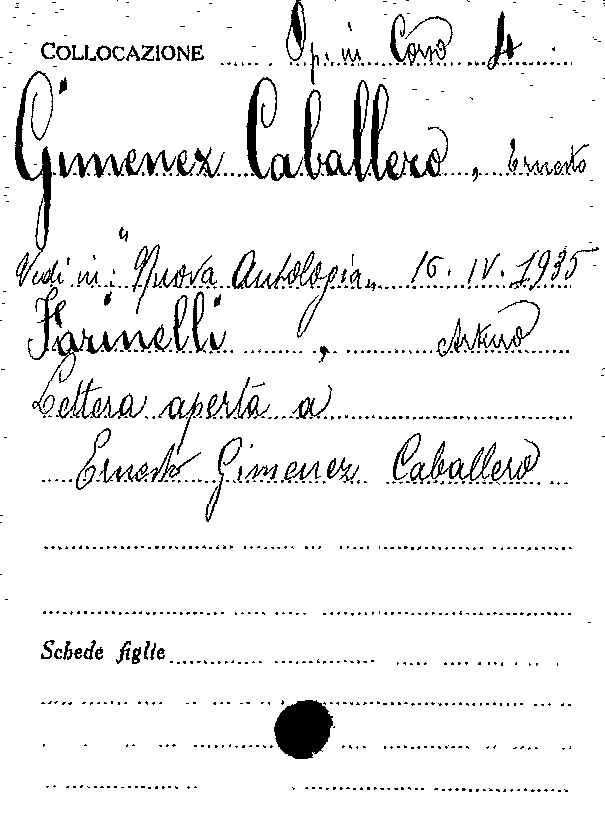 COLLOCAZIONE Op. in Corso 4
Gimenez Caballero, Ernesto
Vedi in: "Nuova Antologia„ 16. IV. 1935
Farinelli, Arturo
Lettera aperta a
Ernesto Gimenez Caballero
Schede figlie